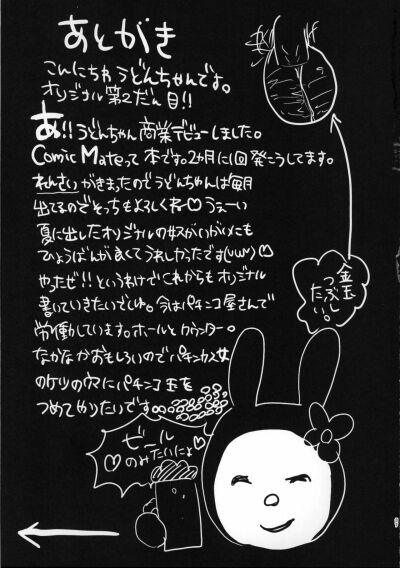 あとがき
こんにちわうどんちゃんです。
オリジナル第2だん目!!
あ!!うどんちゃん商業デビューしました。
Comic Mateって本です。2か月に1回発こうしてます。
れんさいがきまったのでうどんちゃんは毎月
出てるのでそっちもよろしくね♡うぇーい
夏に出したオリジナルの
ひょうばんが良くてうれしかったです(uwu)♡
やったぜ!!というわけでこれからもオリジナル
書いていきたいでしゅ。今はパチンコ屋さんで
労働しています。ホールとカウンター。
なかなかおもしろいのでパチンカス女
のケツの穴にパチンコ玉を
つめてやりたいです
金玉
つぶし
たい。
ビール
♡のみたいにょ♡